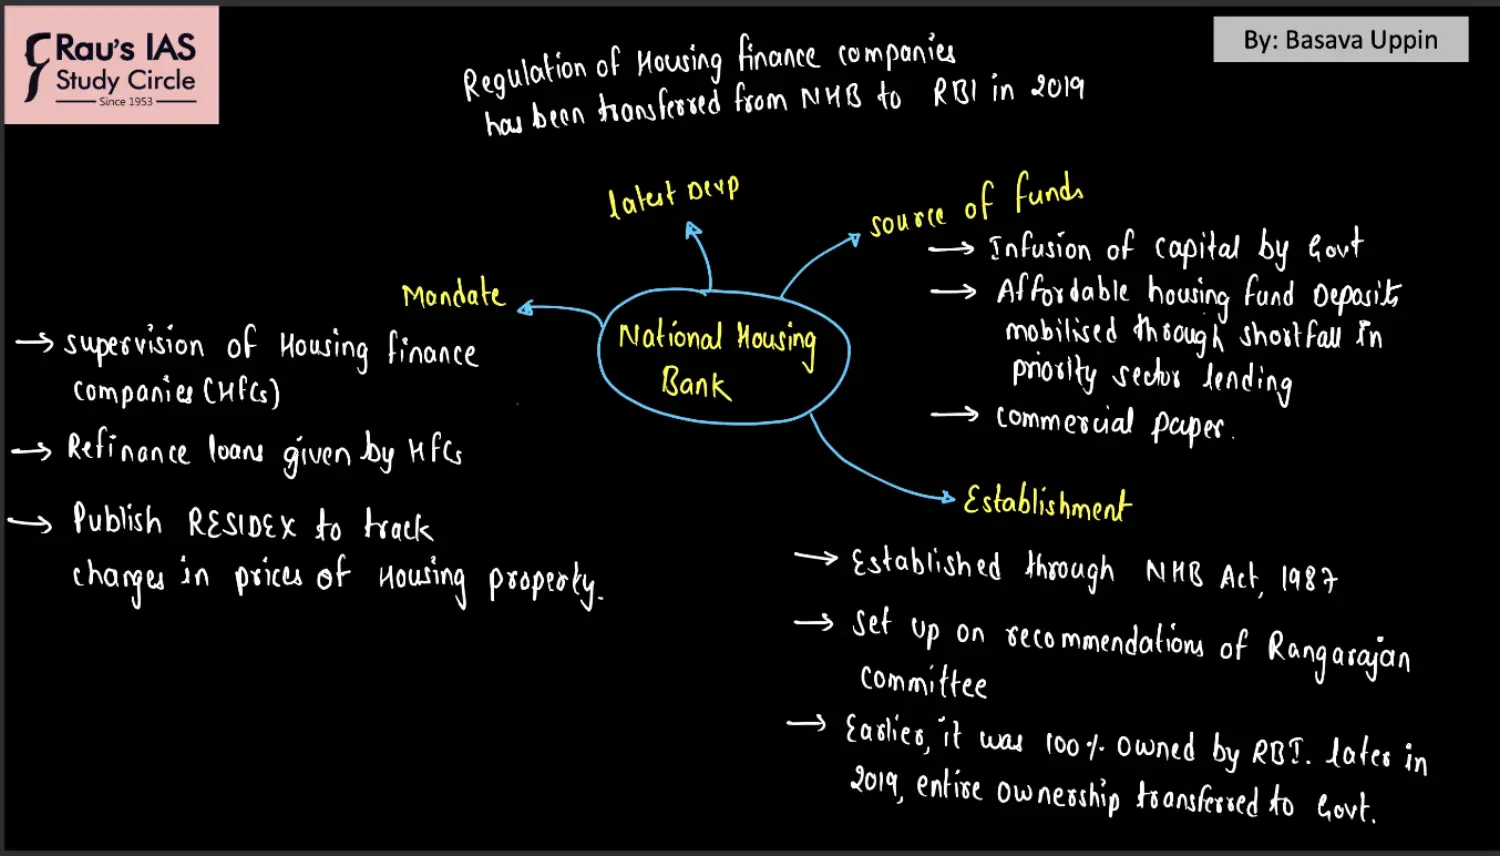 Rau's IAS
Study Circle
Since 1953
By: Basava Uppin
Regulation of Housing finance companies
has been transferred from NHB to RBI in 2019
Latest Devp
Source of funds
→ Infusion of capital by Govt
→ Affordable housing fund Deposits
mobilised through shortfall in
priority sector lending
→ Commercial paper.
Mandate
→ Supervision of Housing finance
companies (HFCs)
→ Refinance loans given by HFCs
→ Publish RESIDEX to track
changes in prices of Housing property.
National Housing
Bank
Establishment
→ Established through NHB Act, 1987
→ Set up on recommendations of Rangarajan
committee
→ Earlier, it was 100% owned by RBI. Later in
2019, entire ownership transferred to Govt.